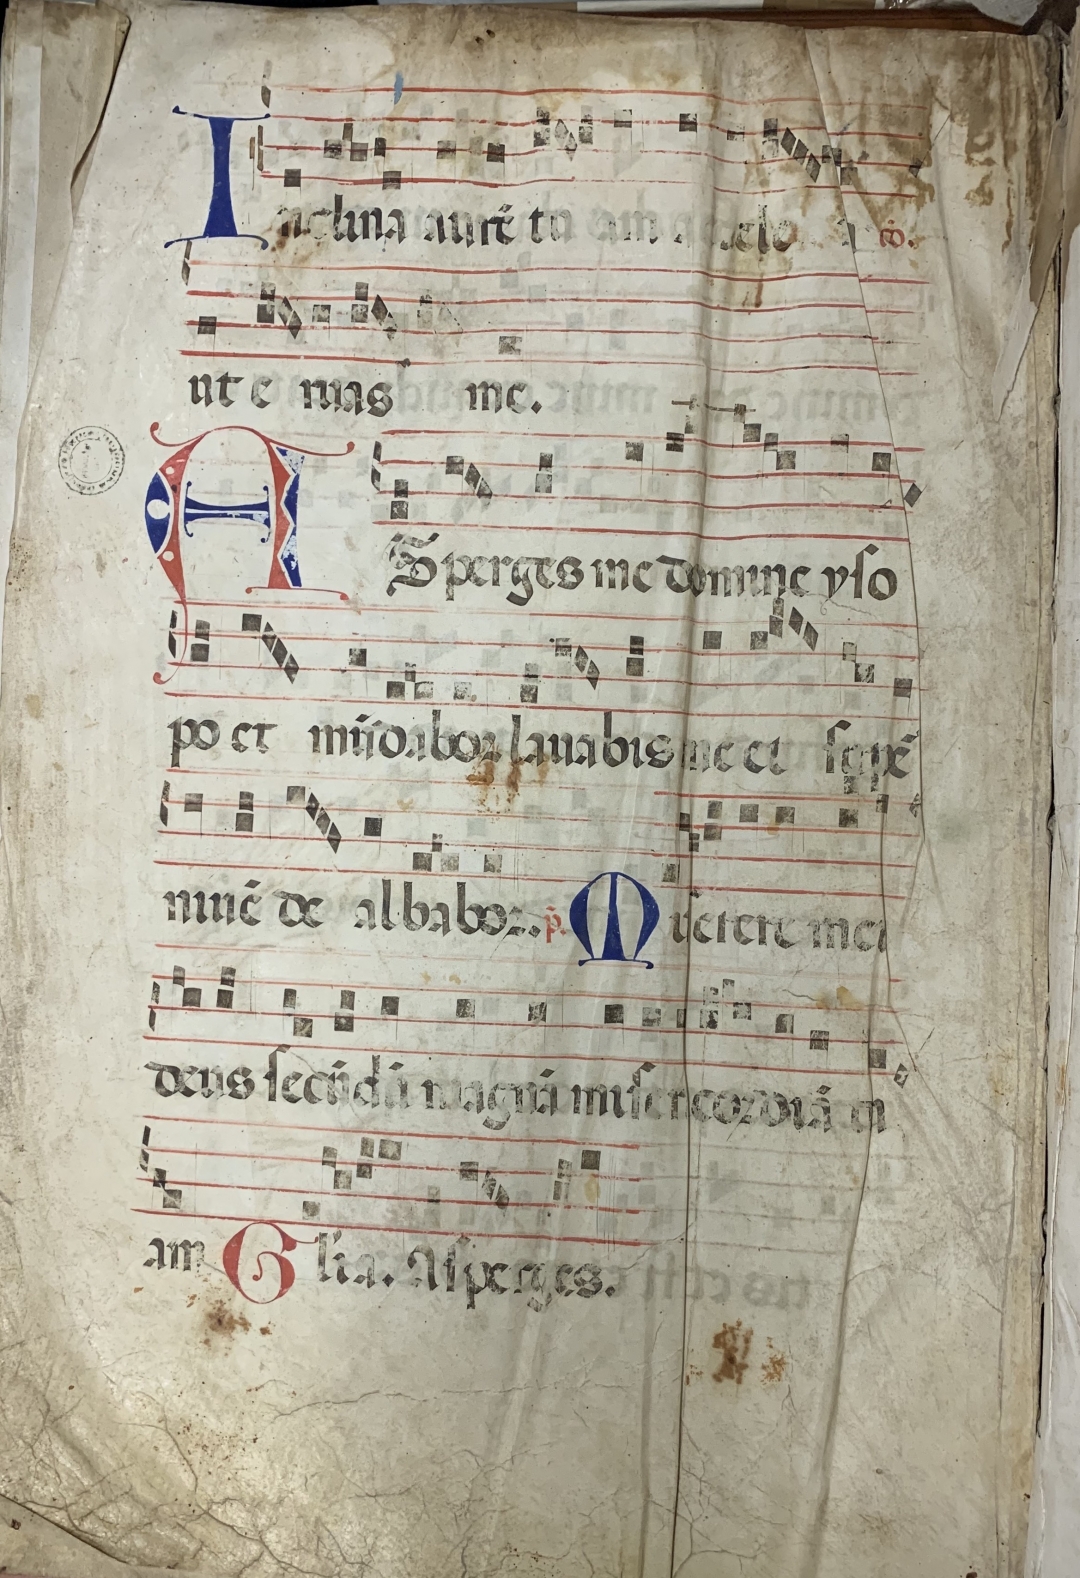 Inclina aurē tu am accele ra cō.
ut e ruas me.
ASperges me domine yso
po et mūdabor lauabis me et sup
niuē de albabor. p̄. Miserere mei
deus secūdū magnā misericordiā tu
am Glia. Asperges.